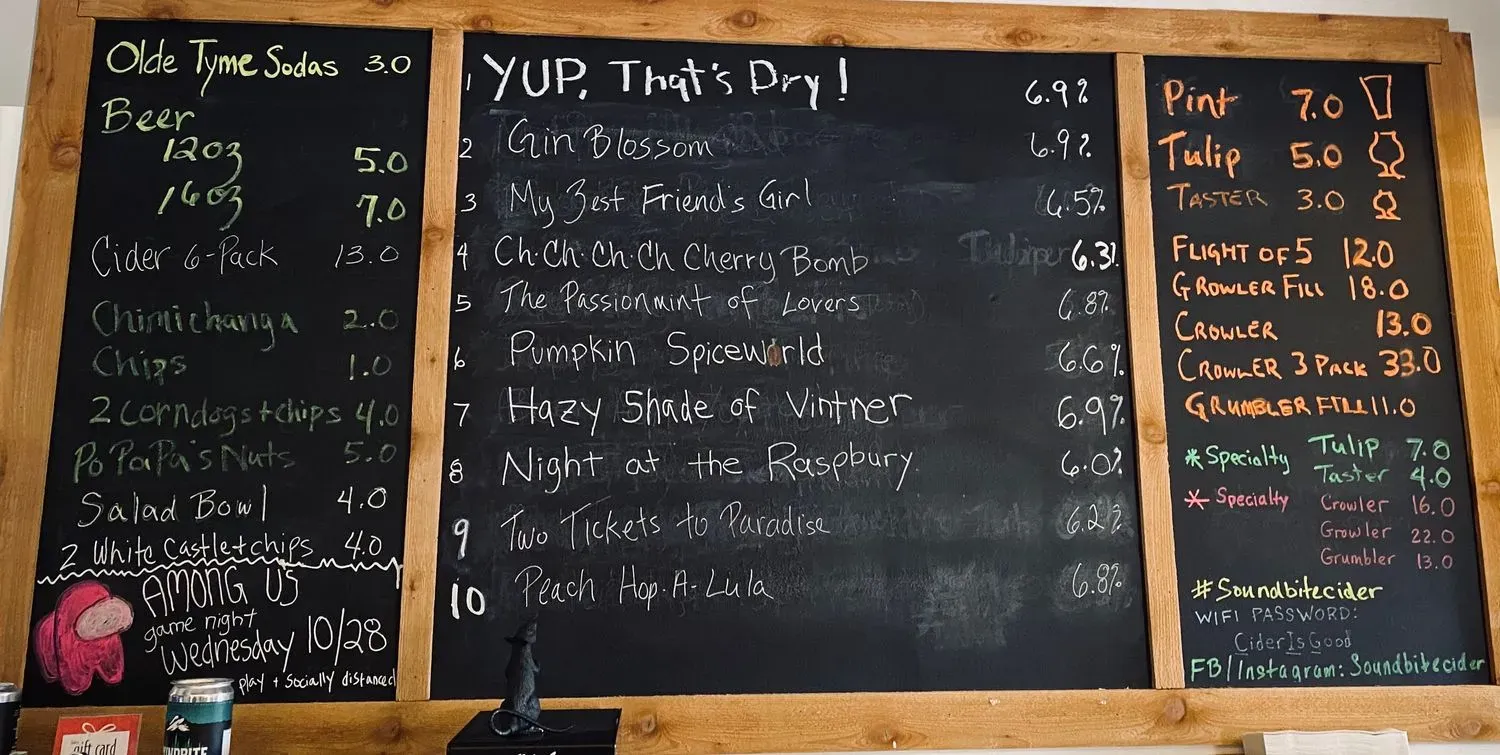 Olde Tyme Sodas 3.0
Beer
12oz 5.0
16oz 7.0
Cider 6-Pack 13.0
Chimichanga 2.0
Chips 1.0
2 Corndogs + chips 4.0
Po PaPa's Nuts 5.0
Salad Bowl 4.0
2 White Castle + chips 4.0
AMONG US
game night
Wednesday 10/28
play + Socially distanced
gift card
1 YUP, That's Dry! 6.9%
2 Gin Blossom 6.9%
3 My Best Friend's Girl 6.5%
4 Ch·Ch·Ch·Ch Cherry Bomb 6.3%
5 The Passionmint of Lovers 6.8%
6 Pumpkin Spiceworld 6.6%
7 Hazy Shade of Vintner 6.9%
8 Night at the Raspbury 6.0%
9 Two Tickets to Paradise 6.2%
10 Peach Hop-A-Lula 6.8%
Pint 7.0
Tulip 5.0
TASTER 3.0
FLIGHT OF 5 12.0
GROWLER FILL 18.0
CROWLER 13.0
CROWLER 3 PACK 33.0
GRUMBLER FILL 11.0
* Specialty Tulip 7.0
Taster 4.0
* Specialty Crowler 16.0
Growler 22.0
Grumbler 13.0
#Soundbitecider
WIFI PASSWORD:
CiderIsGood
FB/Instagram: Soundbitecider